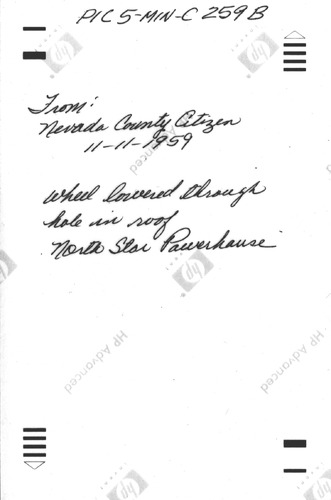 PIC 5-MIN-C 259B
From:
Nevada County Citizen
11-11-1959
Wheel lowered through
hole in roof
North Star Powerhouse
hp
HP Advanced
HP Advanced
HP Advanced